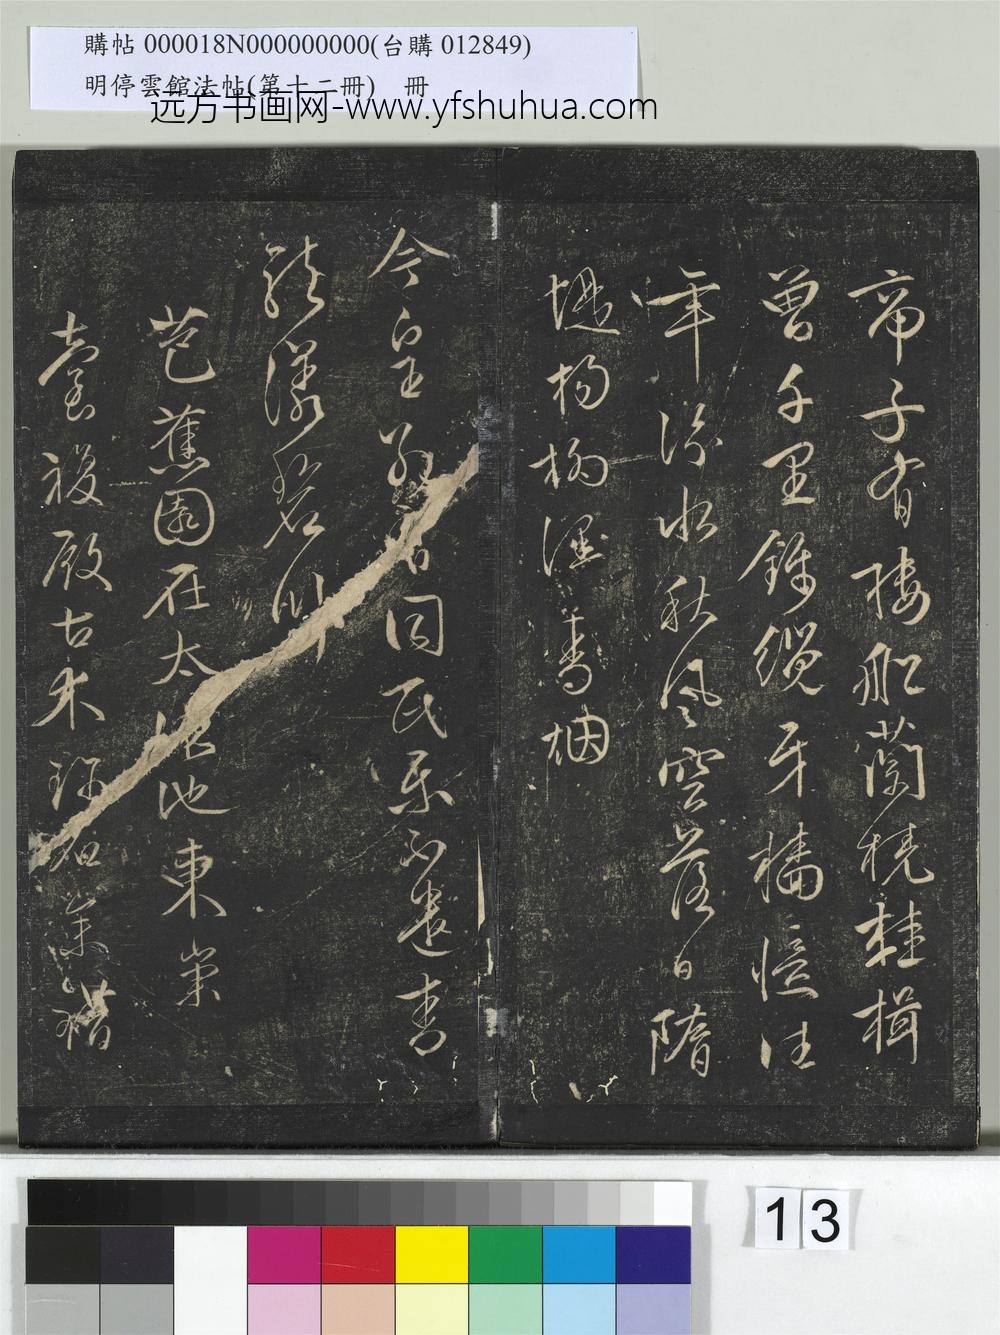 購帖 000018N000000000(台購 012849)
明停雲館法帖(第十二冊) 冊
远方书画网-www.yfshuhua.com
帝子有樓船蘭橈桂楫
曾千里錦纜牙檣憶往
年汾水秋風空落日隋
堤楊柳烟
今皇別有同民樂不遣青
龍漾碧川
芭蕉園在太液池東崇
臺複殿古木珍石參錯
13